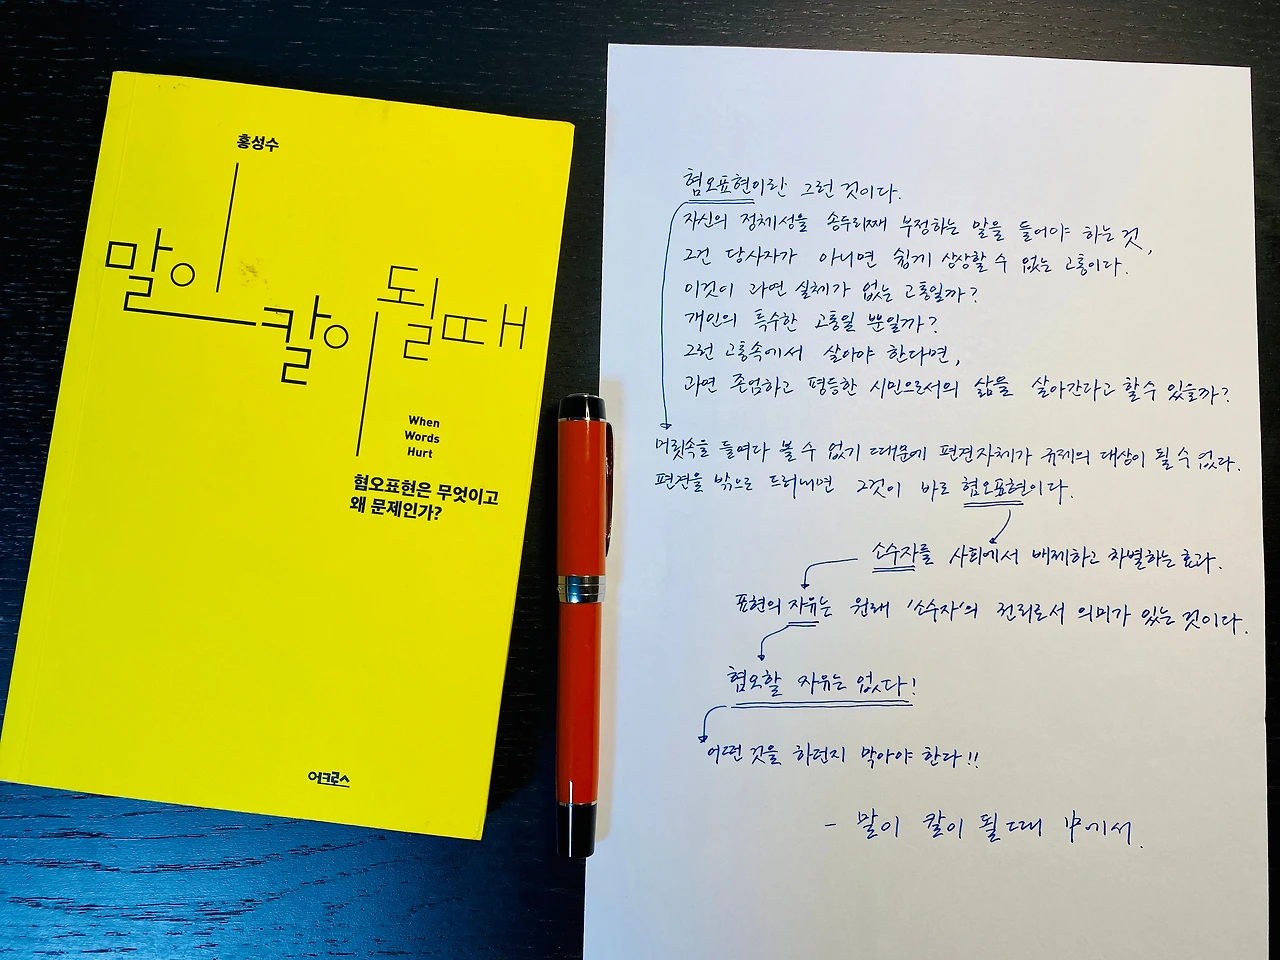 홍성수
말이
칼이
될 때
When
Words
Hurt
혐오표현은 무엇이고
왜 문제인가?
어크로스
혐오표현이란 그런 것이다.
자신의 정체성을 송두리째 부정하는 말을 들어야 하는 것,
그건 당사자가 아니면 쉽게 상상할 수 없는 고통이다.
이것이 과연 실체가 없는 고통일까?
개인의 특수한 고통일 뿐일까?
그런 고통속에서 살아야 한다면,
과연 존엄하고 평등한 시민으로서의 삶을 살아간다고 할 수 있을까?
머릿속을 들여다 볼 수 없기 때문에 편견자체가 규제의 대상이 될 수 없다.
편견을 밖으로 드러내면 그것이 바로 혐오표현이다.
소수자를 사회에서 배제하고 차별하는 효과.
표현의 자유는 원래 '소수자'의 권리로서 의미가 있는 것이다.
혐오할 자유는 없다!
어떤 것을 하던지 막아야 한다!!
- 말이 칼이 될 때 中에서.